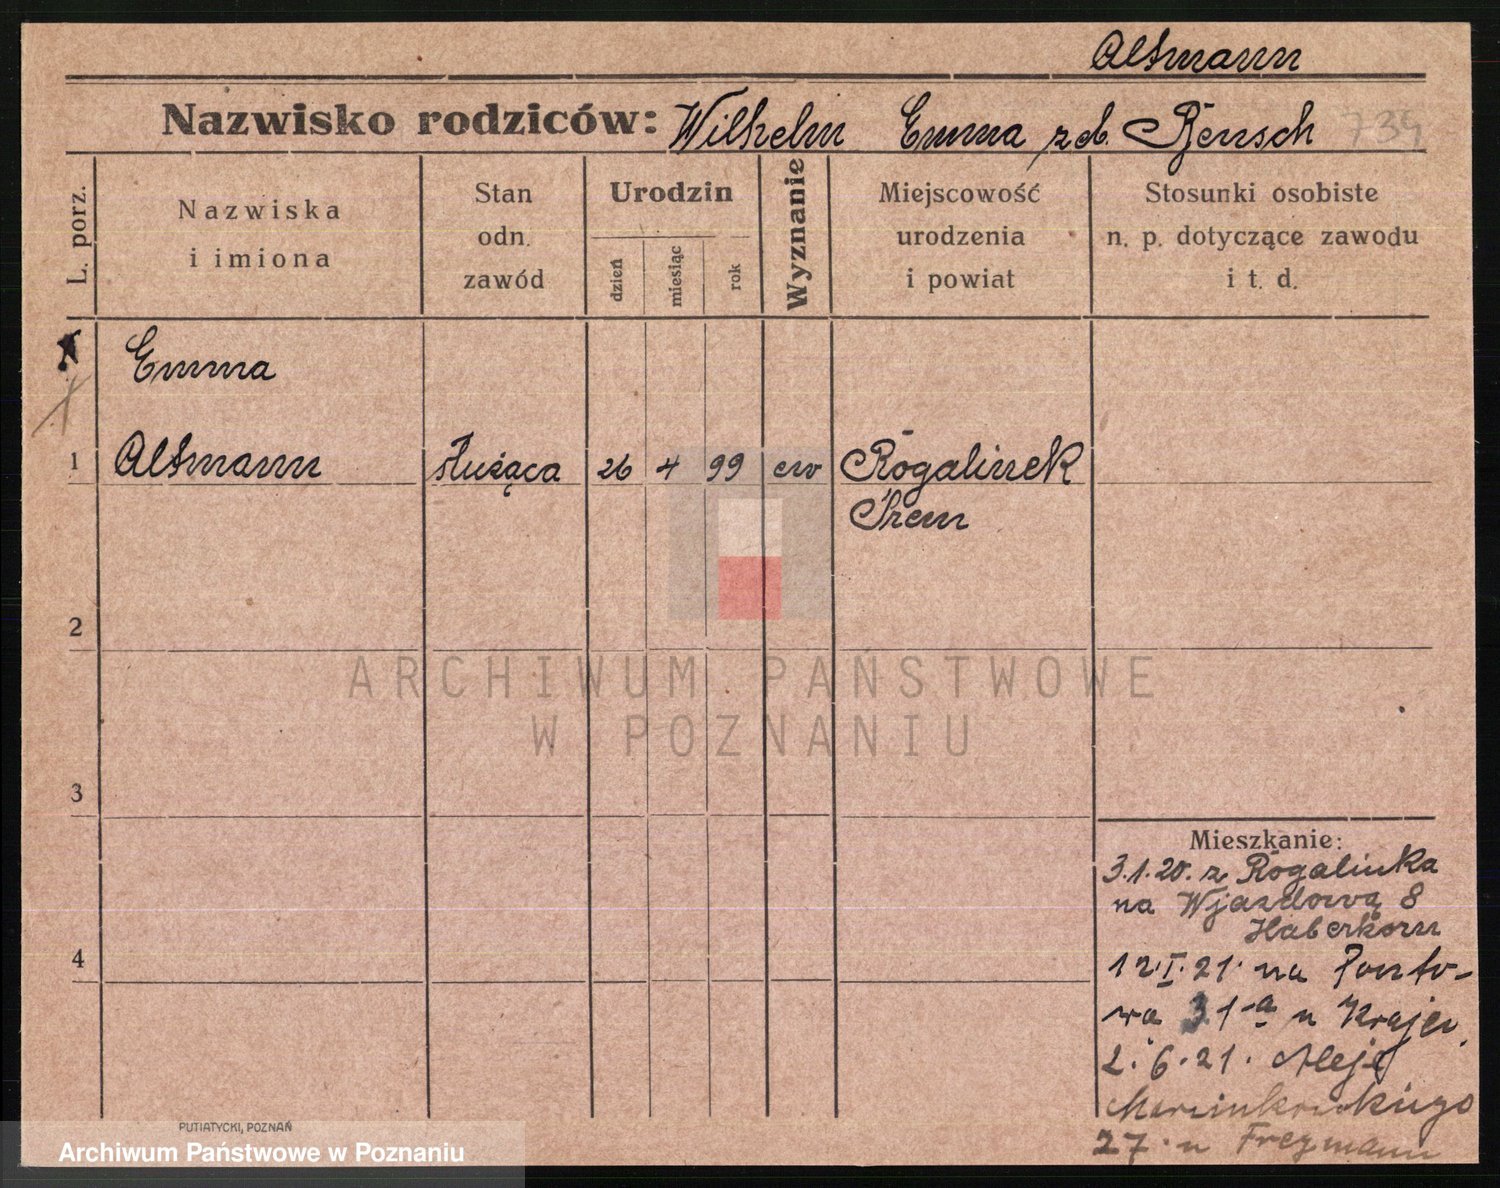 Altmann
Nazwisko rodziców: Wilhelm Emma zd. Rensch 739
L. porz.
Nazwiska
i imiona
Stan
odn.
zawód
Urodzin
dzień
miesiąc
rok
Wyznanie
Miejscowość
urodzenia
i powiat
Stosunki osobiste
n. p. dotyczące zawodu
i t. d.
Emma
1 Altmann służąca 26 4 99 ew Rogalinek
Śrem
2
ARCHIWUM PAŃSTWOWE
W POZNANIU
3
4
Mieszkanie:
3.1.20. z Rogalinka
na Wjazdową 8
Haberkorn
12.I.21. na Ponto-
wa 31a u
2.6.21. Aleje
Marcinkowskiego
27. u Freymann
PUTIATYCKI, POZNAŃ
Archiwum Państwowe w Poznaniu